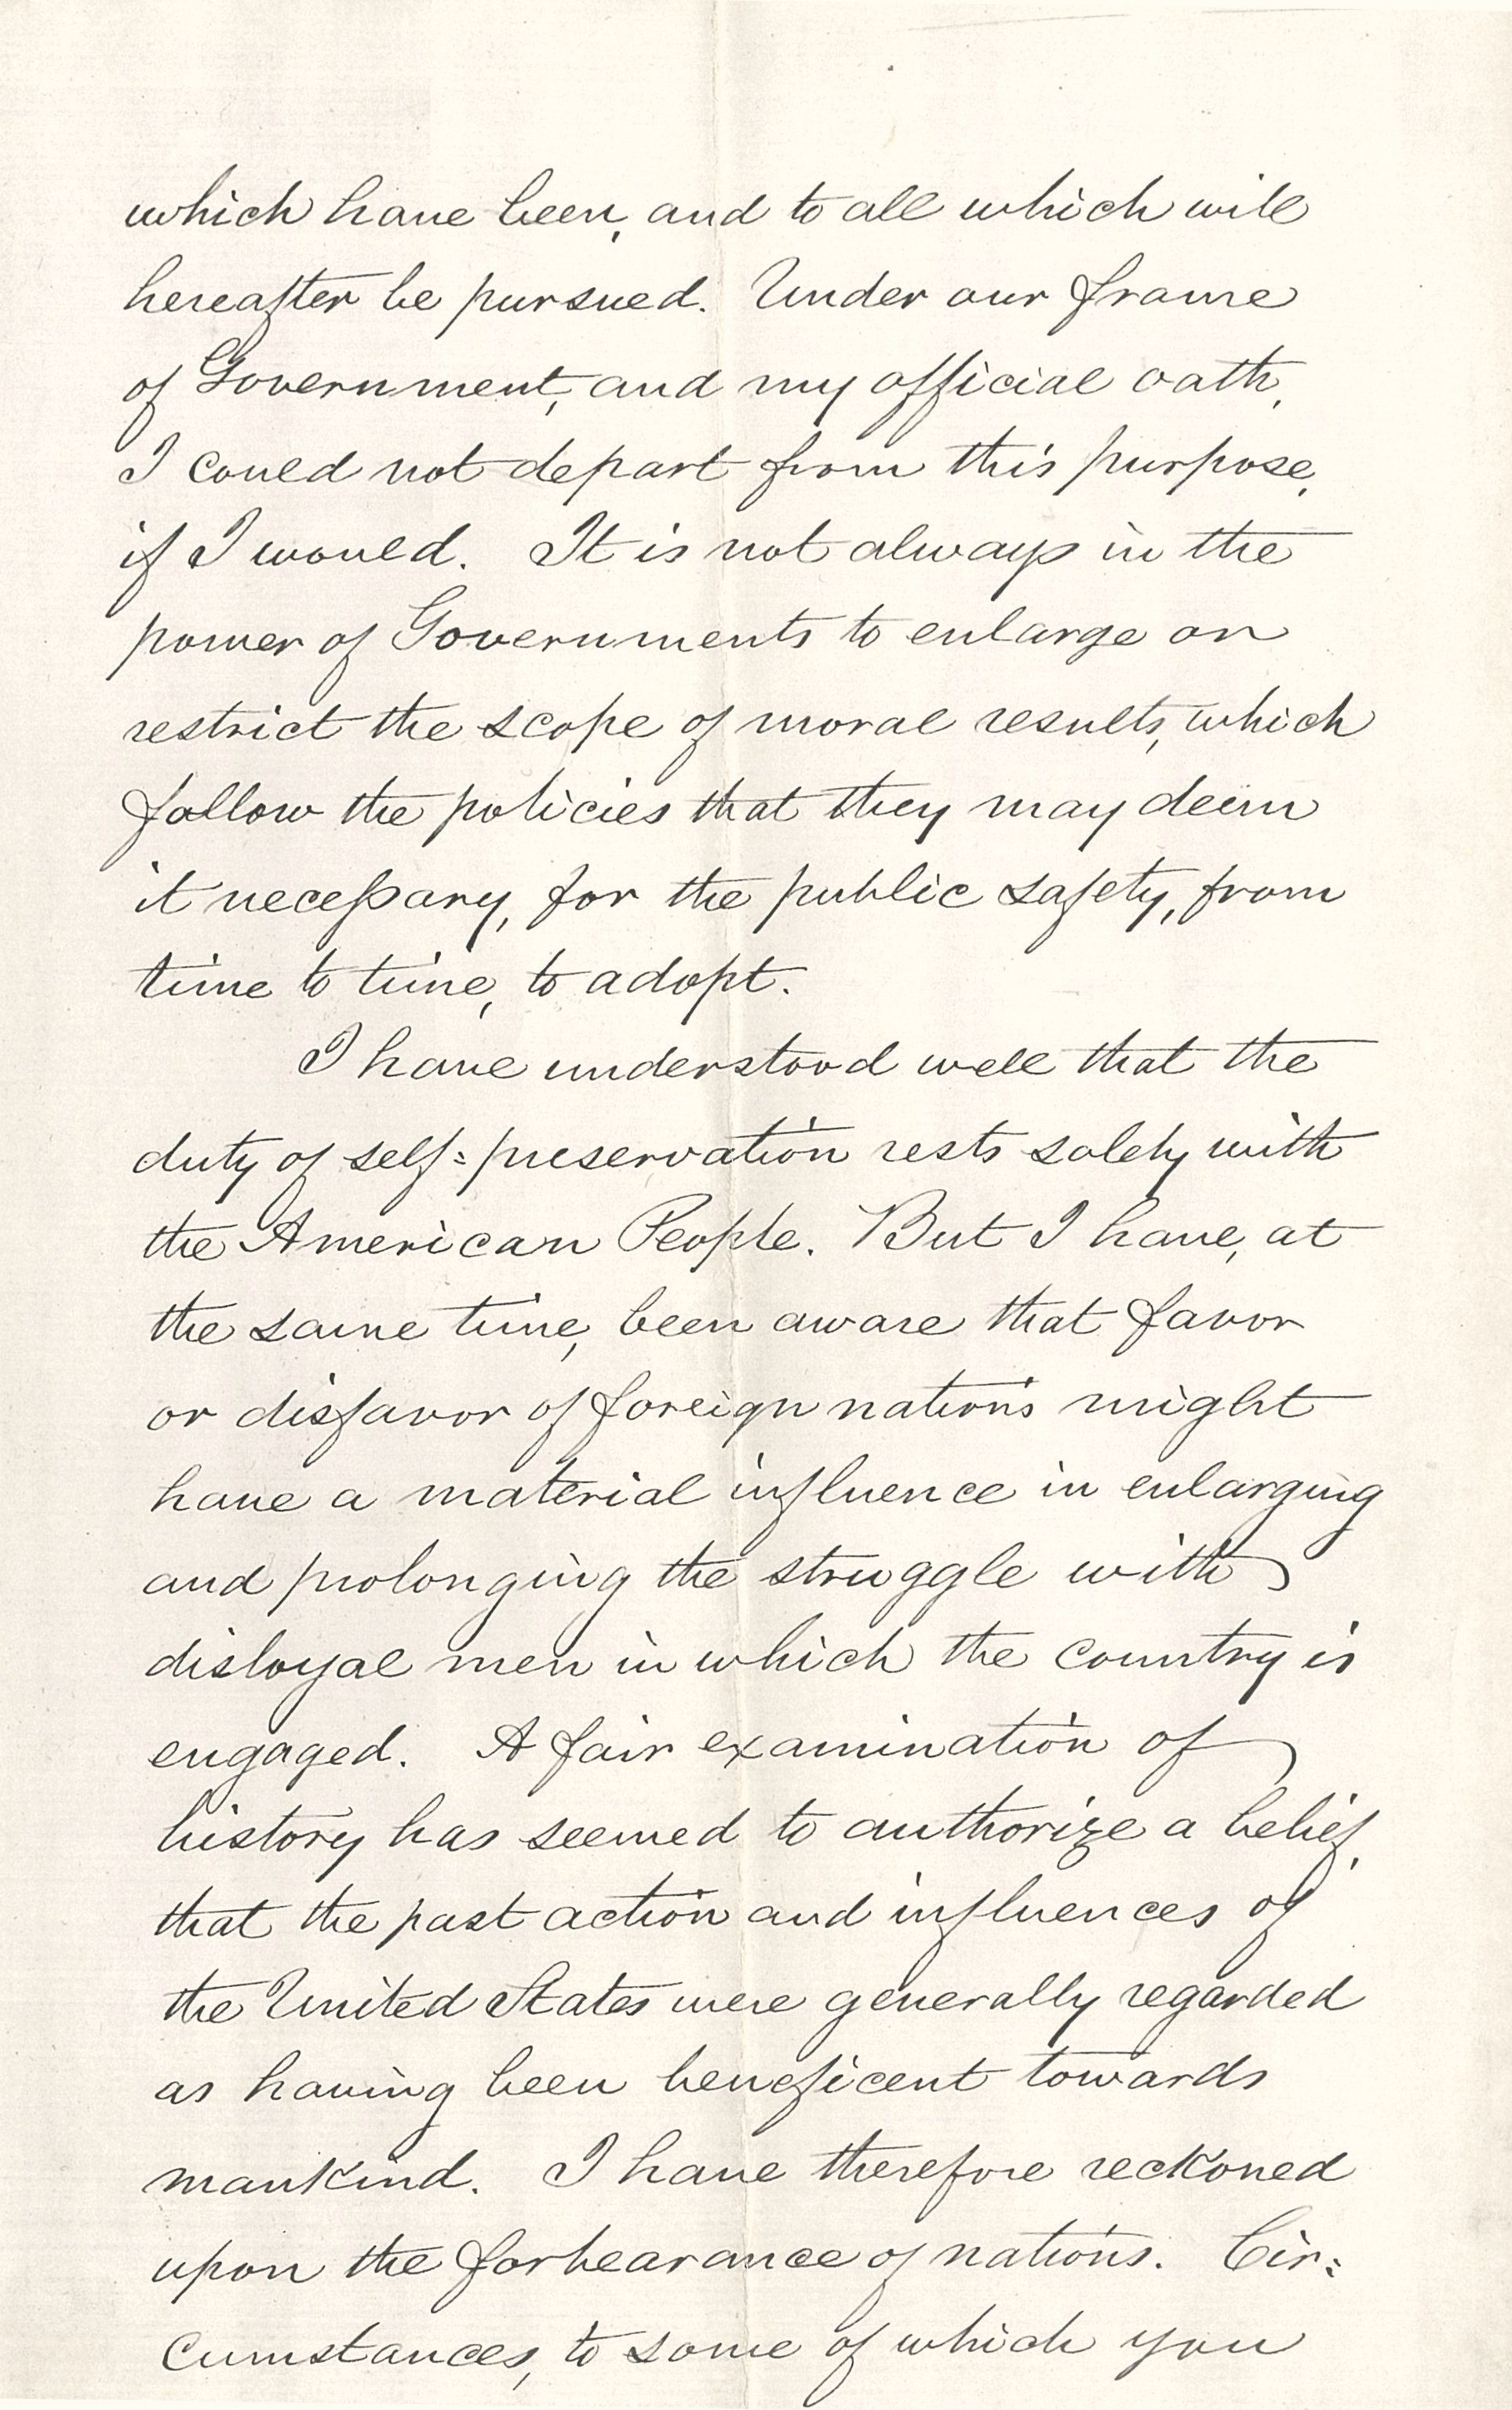 which have been, and to all which will
hereafter be pursued. Under our frame
of Government, and my official oath,
I could not depart from this purpose,
if I would. It is not always in the
power of Governments to enlarge or
restrict the scope of moral results, which
follow the policies that they may deem
it necessary, for the public safety, from
time to time, to adopt.
I have understood well that the
duty of self=preservation rests solely with
the American People. But I have, at
the same time, been aware that favor
or disfavor of foreign nations might
have a material influence in enlarging
and prolonging the struggle with
disloyal men in which the country is
engaged. A fair examination of
history has seemed to authorize a belief,
that the past action and influences of
the United States were generally regarded
as having been beneficent towards
mankind. I have therefore reckoned
upon the forbearance of nations. Cir=
cumstances, to some of which you